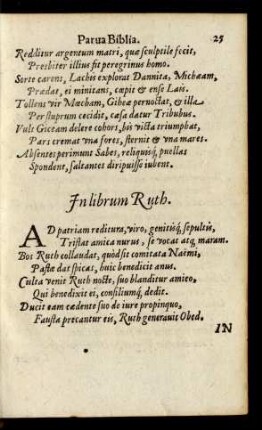 Parua Biblia. 25
Redditur argentum matri, quæ sculptile fecit,
Presbiter illius fit peregrinus homo.
Sorte carens, Lachis explorat Dannita, Michæam,
Prædat, ei minitans, cœpit & ense Lais.
Tollens vir Mœcham, Gibeæ pernoctat, & illa
Per stuprum cecidit, cæsa datur Tribubus.
Vult Giceam delere cohors, bis victa triumphat,
Pars cremat vna fores, sternit & vna mares.
Absentes perimunt Sabes, reliquisq, puellas
Spondent, saltantes diripuisse iubent.
In librum Ruth.
AD patriam reditura, viro, genitisq́, sepultis,
Tristat amica nurus, se vocat atq, maram.
Bos Ruth collaudat, quod sit comitata Naemi,
Pastæ dat spicas, huic benedicit anus.
Culta venit Ruth nocte, suo blanditur amico,
Qui benedixit ei, consiliumq́, dedit.
Ducit eam cædente suo de iure propinquo,
Fausta precantur eis, Ruth generauit Obed.
IN